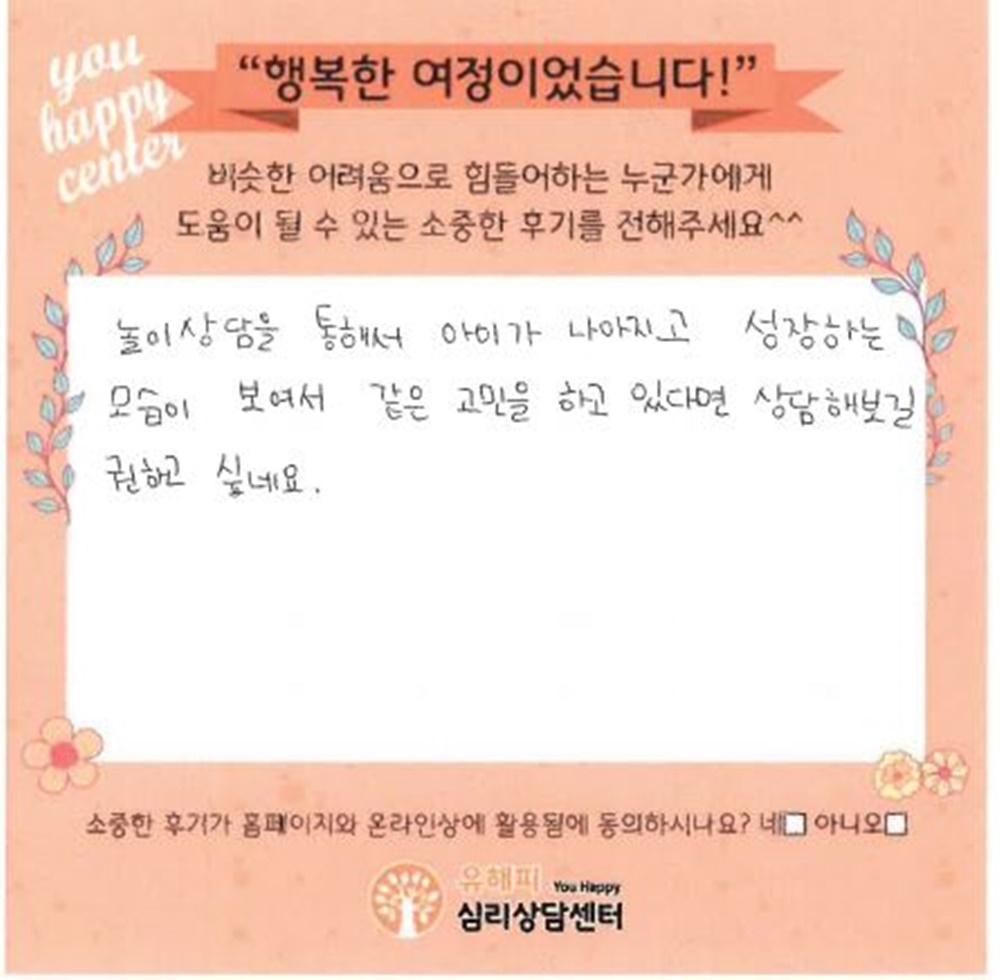 you
happy
center
“행복한 여정이었습니다!”
비슷한 어려움으로 힘들어하는 누군가에게
도움이 될 수 있는 소중한 후기를 전해주세요^^
놀이상담을 통해서 아이가 나아지고 성장하는
모습이 보여서 같은 고민을 하고 있다면 상담해보길
권하고 싶네요.
소중한 후기가 홈페이지와 온라인상에 활용됨에 동의하시나요? 네□ 아니오□
유해피 You Happy
심리상담센터